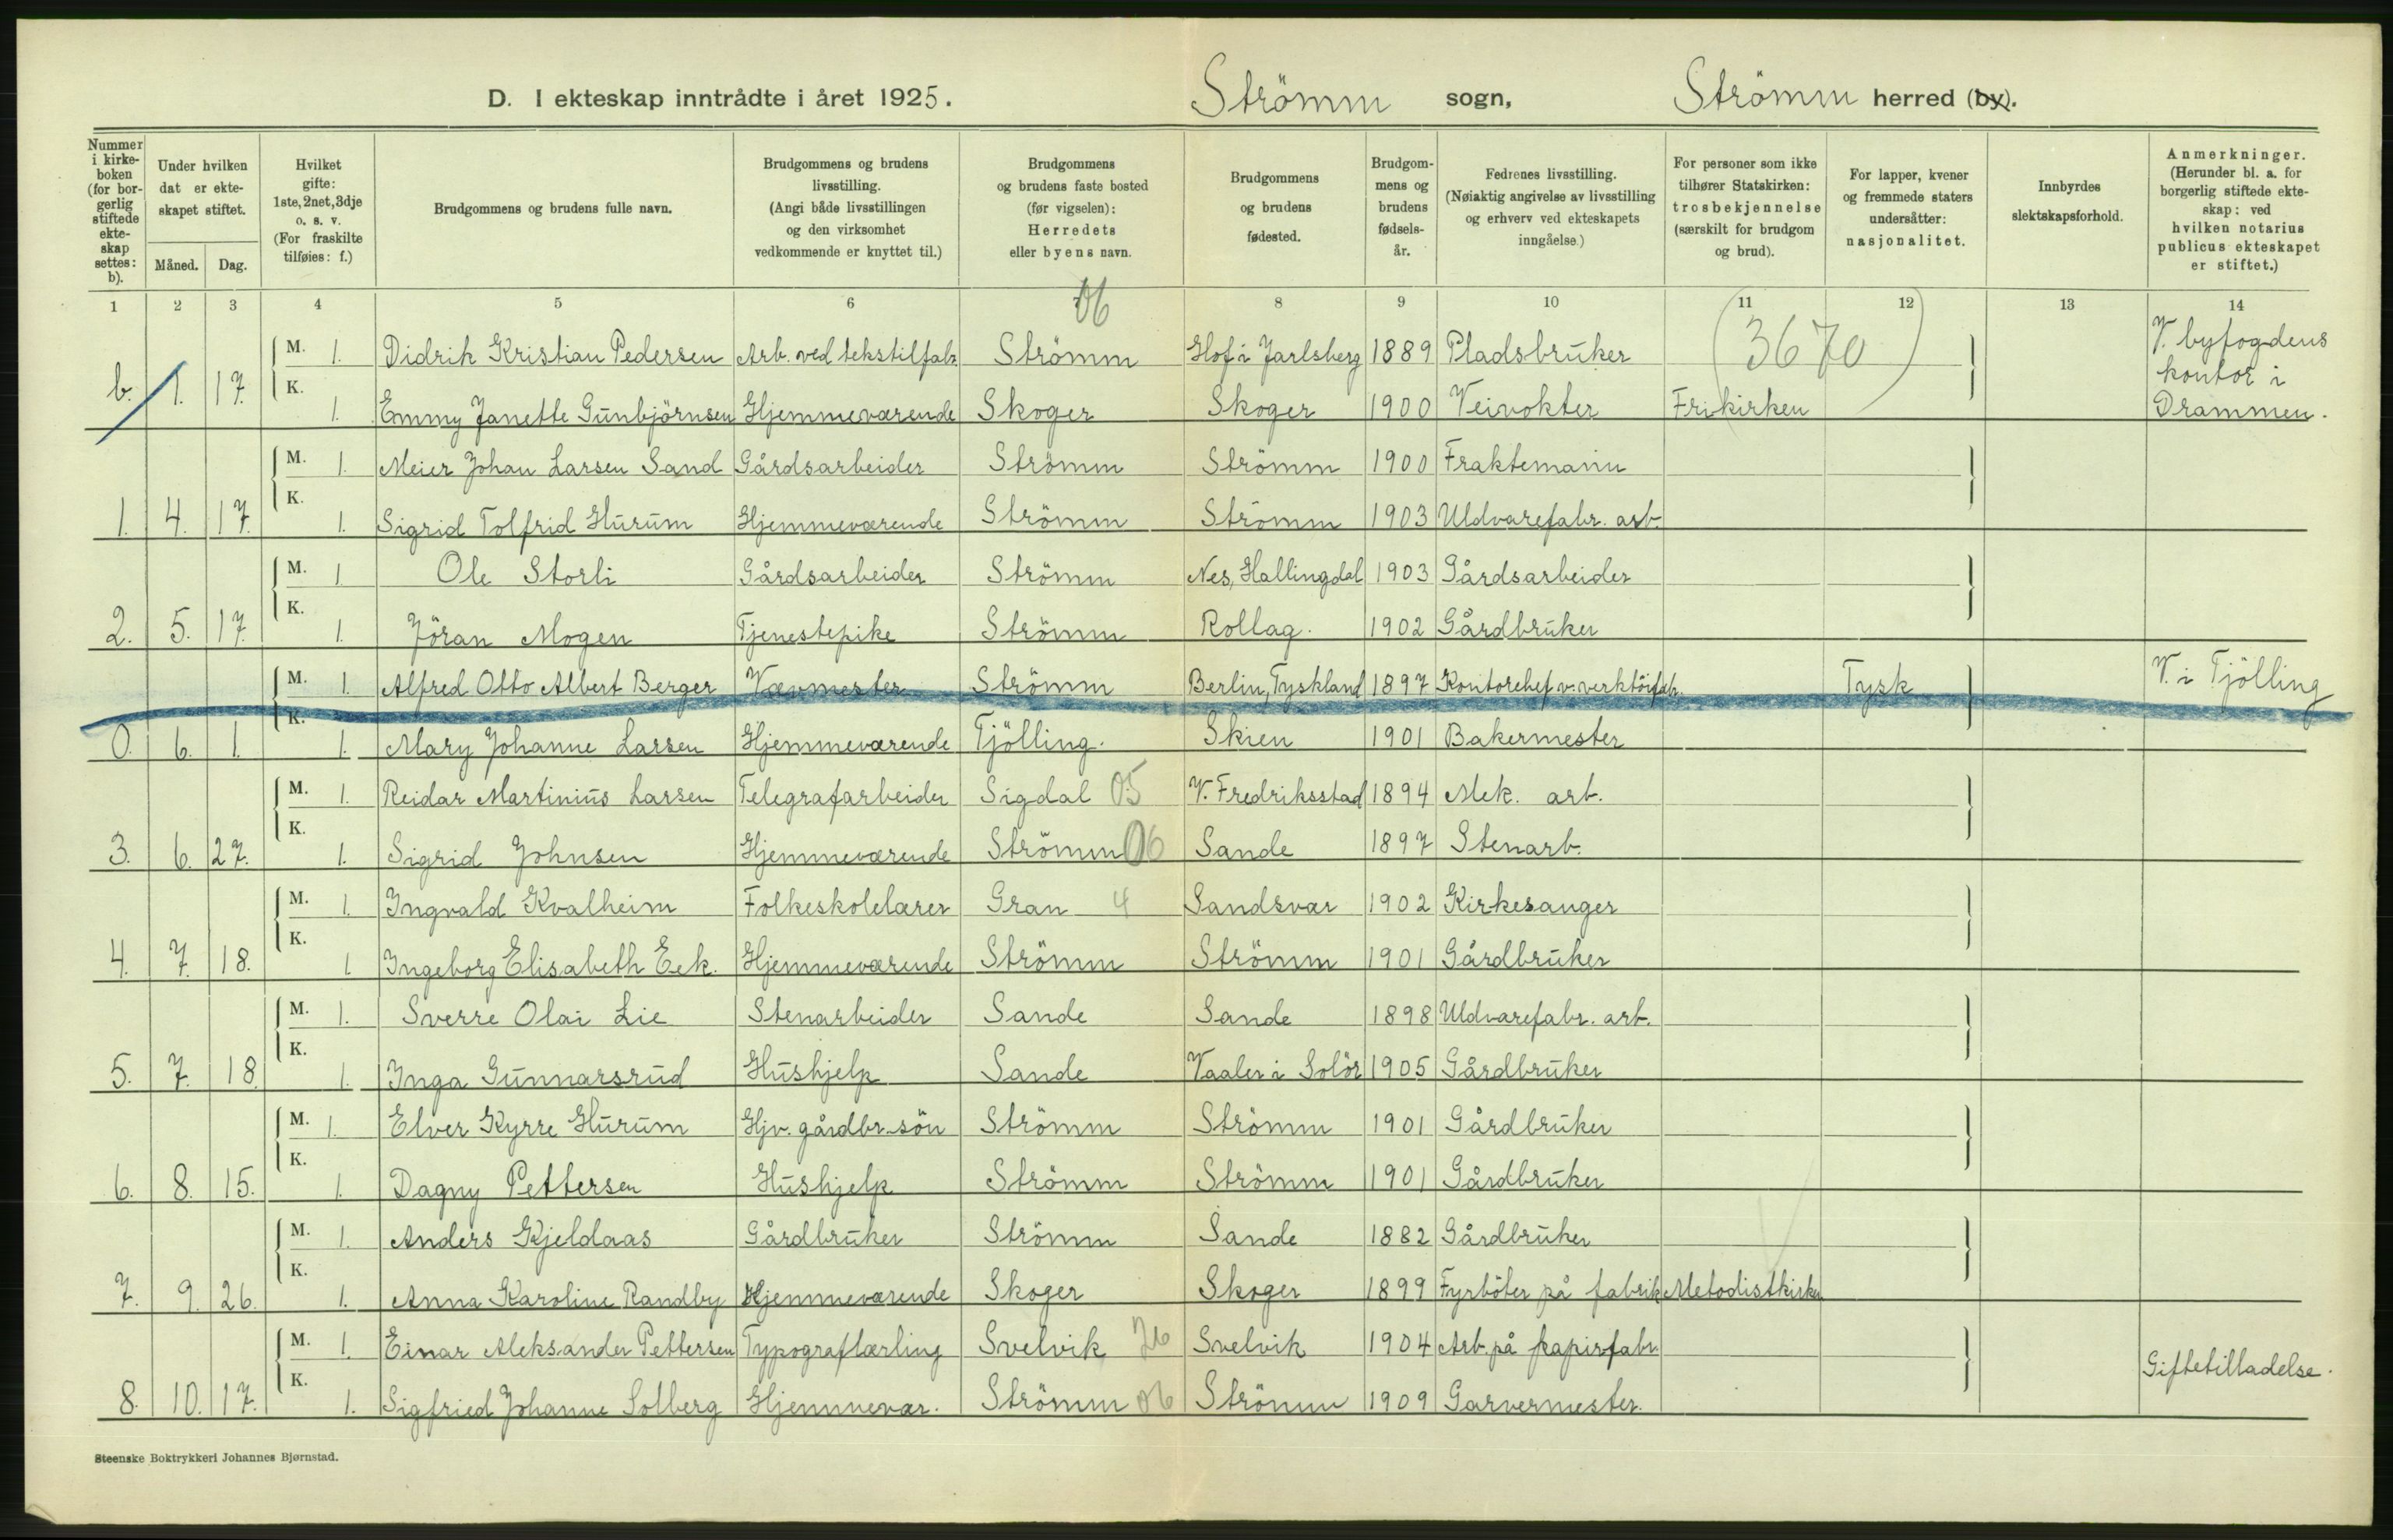 D. I ekteskap inntrådte i året 1925. Strömm sogn, Strömm herred (by).
Nummer i kirkeboken (for borgerlig stiftede ekteskap settes: b).
Under hvilken dat er ekteskapet stiftet.
Måned. Dag.
Hvilket gifte: 1ste, 2net, 3dje o. s. v. (For fraskilte tilføies: f.)
Brudgommens og brudens fulle navn.
Brudgommens og brudens livsstilling. (Angi både livsstillingen og den virksomhet vedkommende er knyttet til.)
Brudgommens og brudens faste bosted (før vigselen): Herredets eller byens navn.
Brudgommens og brudens fødested.
Brudgommens og brudens fødselsår.
Fedrenes livsstilling. (Nøiaktig angivelse av livsstilling og erhverv ved ekteskapets inngåelse.)
For personer som ikke tilhører Statskirken: trosbekjennelse (særskilt for brudgom og brud).
For lapper, kvener og fremmede staters undersåtter: nasjonalitet.
Innbyrdes slektskapsforhold.
Anmerkninger. (Herunder bl. a. for borgerlig stiftede ekteskap: ved hvilken notarius publicus ekteskapet er stiftet.)
1 2 3 4 5 6 7 8 9 10 11 12 13 14
06
M. 1. Didrik Kristian Pedersen Arb. ved tekstilfabr. Strömm Hof i Jarlsberg 1889 Pladsbruker (3670) V. byfogdens kontor i Drammen.
b. 1. 17. K. 1. Emmy Janette Gunbjörnsen Hjemmeværende Skoger Skoger 1900 Veivokter Frikirken
M. 1. Meier Johan Larsen Sand Gårdsarbeider Strömm Strömm 1900 Fraktemann
1. 4. 17. K. 1. Sigrid Tolfrid Hurum Hjemmeværende Strömm Strömm 1903 Uldvarefabr. arb.
M. 1 Ole Storli Gårdsarbeider Strömm Nes, Hallingdal 1903 Gårdsarbeider
2. 5. 17. K. 1. Jöran Mogen Tjenestepike Strömm Rollag. 1902 Gårdbruker
M. 1. Alfred Otto Albert Berger Vævmester Strömm Berlin, Tyskland 1897 Kontorchef v. verktöifabr. Tysk V. i Tjölling
0. 6. 1. K. 1. Mary Johanne Larsen Hjemmeværende Tjölling. Skien 1901 Bakermester
M. 1. Reidar Martinius Larsen Telegrafarbeider Sigdal 05 V. Fredriksstad 1894 Mek. arb.
3. 6. 27. K. 1. Sigrid Johnsen Hjemmeværende Strömm 06 Sande 1897 Stenarb.
M. 1. Ingvald Kvalheim Folkeskolelærer Gran 4 Sandsvær 1902 Kirkesanger
4. 7. 18. K. 1 Ingeborg Elisabeth Eek. Hjemmeværende Strömm Strömm 1901 Gårdbruker
M. 1. Sverre Olai Lie Stenarbeider Sande Sande 1898 Uldvarefabr. arb.
5. 7. 18. K. 1. Inga Gunnarsrud Hushjelp Sande Vaaler i Solör 1905 Gårdbruker
M. 1. Elver Kyrre Hurum Hjv. gårdbr. sön Strömm Strömm 1901 Gårdbruker
6. 8. 15. K. 1. Dagny Pettersen Hushjelp Strömm Strömm 1901 Gårdbruker
M. 1. Anders Kjeldaas Gårdbruker Strömm Sande 1882 Gårdbruker
7. 9. 26. K. 1. Anna Karoline Randby Hjemmeværende Skoger Skoger 1899 Fyrböter på fabrik Metodistkirken
M. 1. Einar Aleksander Pettersen Typograflærling Svelvik 26 Svelvik 1904 Arb. på papirfabr. Giftetilladelse.
8. 10. 17. K. 1. Sigfried Johanne Solberg Hjemmevær. Strömm 06 Strömm 1909 Garvermester.
Steenske Boktrykkeri Johannes Bjørnstad.